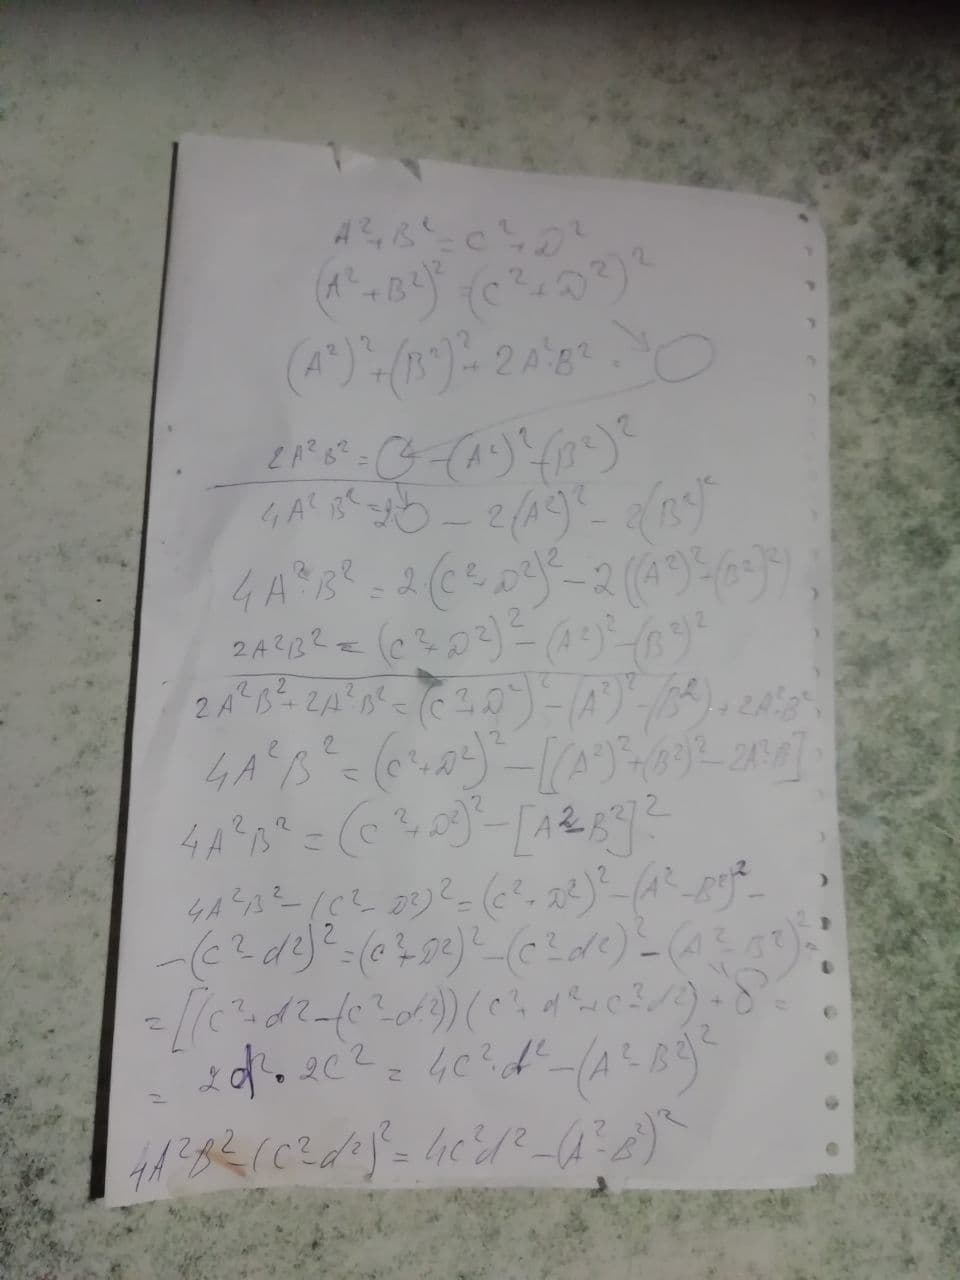 A²+B²=C²+D²
(A²+B²)²=(C²+D²)²
(A²)²+(B²)²+2A²·B²=
2A²B²= -(A²)²-(B²)²
4A²B²=2 - 2(A²)² - 2(B²)²
4A²·B²=2·(C²+D²)²-2((A²)²+(B²)²)
2A²B²=(C²+D²)²-(A²)²-(B²)²
2A²B²+2A²B²=(C²+D²)²-(A²)²-(B²)²+2A²·B²
4A²B²=(C²+D²)²-[(A²)²+(B²)²-2A²·B²]
4A²B²=(C²+D²)²-[A²-B²]²
4A²B²-(C²-D²)²=(C²+D²)²-(A²-B²)²-
-(C²-d²)²=(C²+D²)²-(C²-d²)²-(A²-B²)²=
=[(C²+d²-(C²-d²))(C²+d²+C²-d²)+δ=
= 2d²·2C²=4C²·d²-(A²-B²)²
4A²B²-(C²-d²)²=4C²d²-(A²-B²)²